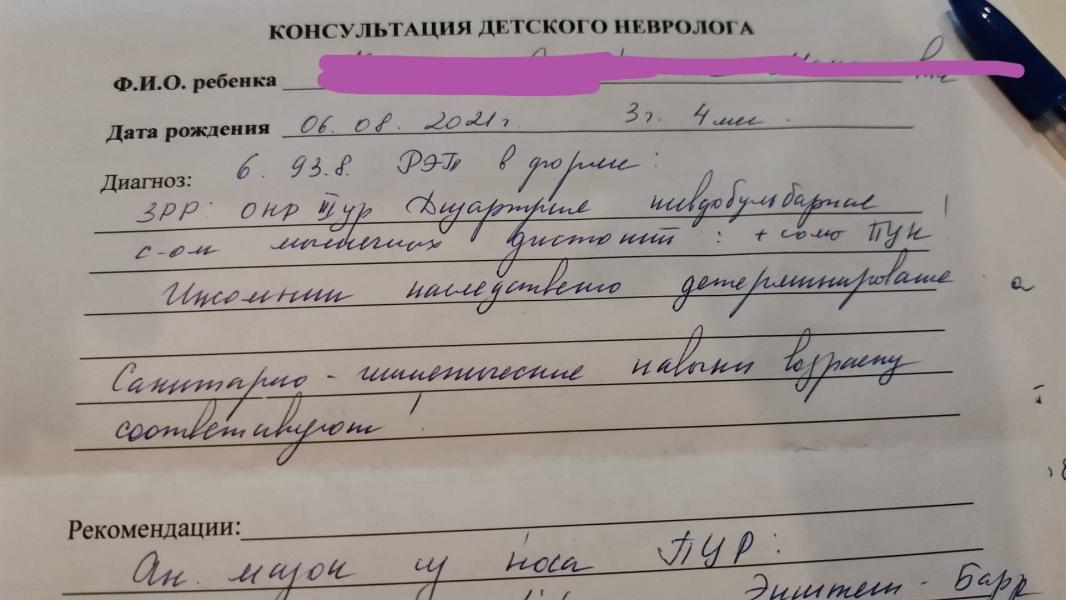 КОНСУЛЬТАЦИЯ ДЕТСКОГО НЕВРОЛОГА
Ф.И.О. ребенка
Дата рождения 06. 08. 2021г. 3г. 4мес.
Диагноз: 6. 93.8. РЭП в форме:
ЗРР: ОНР III ур Дизартрия псевдобульбарная
с-ом мышечных дистоний: +
Инсомнии наследственно
Санитарно-гигиенические навыки возрасту
соответствуют!
Рекомендации:
Ан. мазок из носа ПЦР:
Эпштейн-Барр